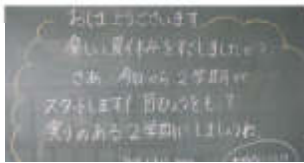 おはようございます
楽しい夏休みをすごしましたか?
さあ 今日から2学期が
スタートします!
実りのある2学期にしましょうね